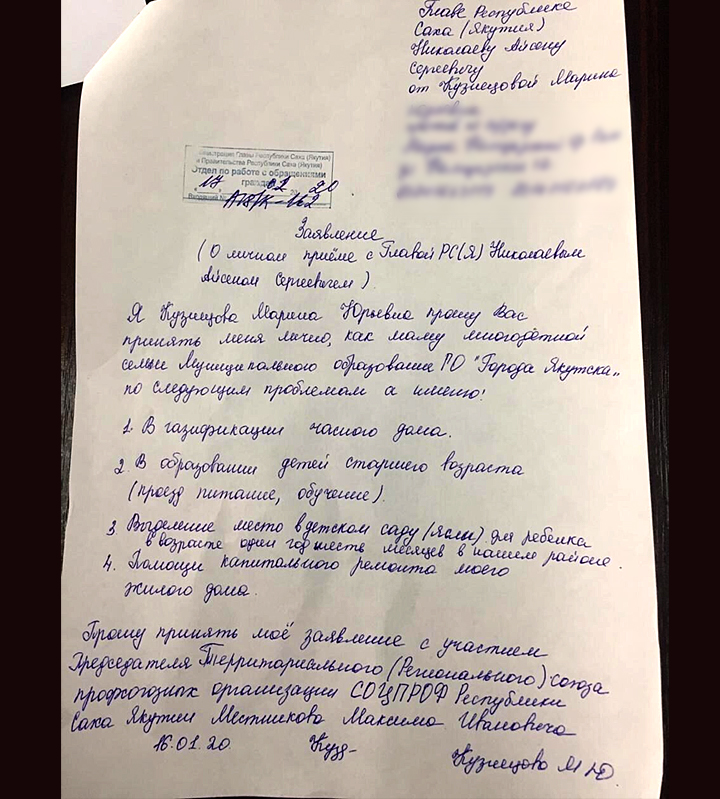 Главе Республике
Саха (Якутия)
Николаеву Айсену
Сергеевичу
от Кузнецовой Марине
Администрация Главы Республики Саха (Якутия)
и Правительства Республики Саха (Якутия)
Отдел по работе с обращениями
граждан
17 02 20
Входящий № А18/К-162
Заявление
(О личном приёме с Главой РС(Я) Николаевым
Айсеном Сергеевичем).
Я Кузнецова Марина Юрьевна прошу Вас
принять меня лично, как маму многодетной
семьи Муниципального образование ГО "Города Якутска"
по следующим проблемам а именно!
1. В газификации часного дома.
2. В образовании детей старшего возраста
(проезд питание, обучение).
3. Выделение место в детском саду (ясли) для ребенка
в возрасте один год шесть месяцев в нашем районе.
4. Помощи капитального ремонта моего
жилого дома.
Прошу принять моё заявление с участием
Председателя Территориального (Регионального) союза
профсоюзных организации СОЦПРОФ Республики
Саха Якутии Местникова Максима Ивановича
16.01.20. Кузн-
Кузнецова М Ю.